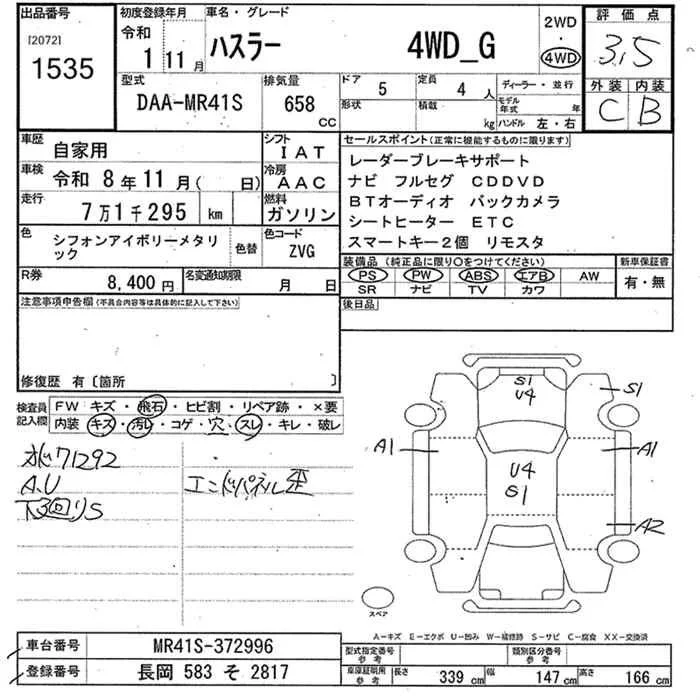 出品番号
[2072]
1535
初度登録年月
令和
1 11 月
車名・グレード
ハスラー 4WD_G
2WD
・
4WD
評価点
3.5
外装 内装
C B
型式
DAA-MR41S
排気量
658
cc
ドア
5
定員
4 人
形状
積載
kg
ディーラー・並行
モデル年式 年
ハンドル 左・右
車歴
自家用
シフト
IAT
車検
令和 8年11月( 日)
冷房
AAC
走行
7万1千295 km
燃料
ガソリン
色
シフォンアイボリーメタリ
ック
色替
色コード
ZVG
R券
8,400 円
名変通知期限
月 日
セールスポイント(正常に機能するものに限ります)
レーダーブレーキサポート
ナビ フルセグ CDDVD
BTオーディオ バックカメラ
シートヒーター ETC
スマートキー2個 リモスタ
装備品(純正品に限り○をつけてください)
PS PW ABS エアB AW
SR ナビ TV カワ
新車保証書
有・無
後日品
注意事項申告欄(不具合内容等は具体的に記入して下さい)
修復歴 有〔箇所 〕
検査員
記入欄
FW キズ・飛石・ヒビ割・リペア跡・×要
内装 キズ・汚レ・コゲ・穴・スレ・キレ・破レ
71292
A.U
下回りS
エンドパネル歪
S1
U4
S1
A1
A1
U4
S1
A2
スペア
A−キズ E−エクボ U−凹み W−補修跡 S−サビ C−腐食 XX−交換済
車台番号
MR41S-372996
登録番号
長岡 583 そ 2817
型式指定番号
参考
類別区分番号
参考
車庫証明用
参考
長さ
339 cm
幅
147 cm
高さ
166 cm